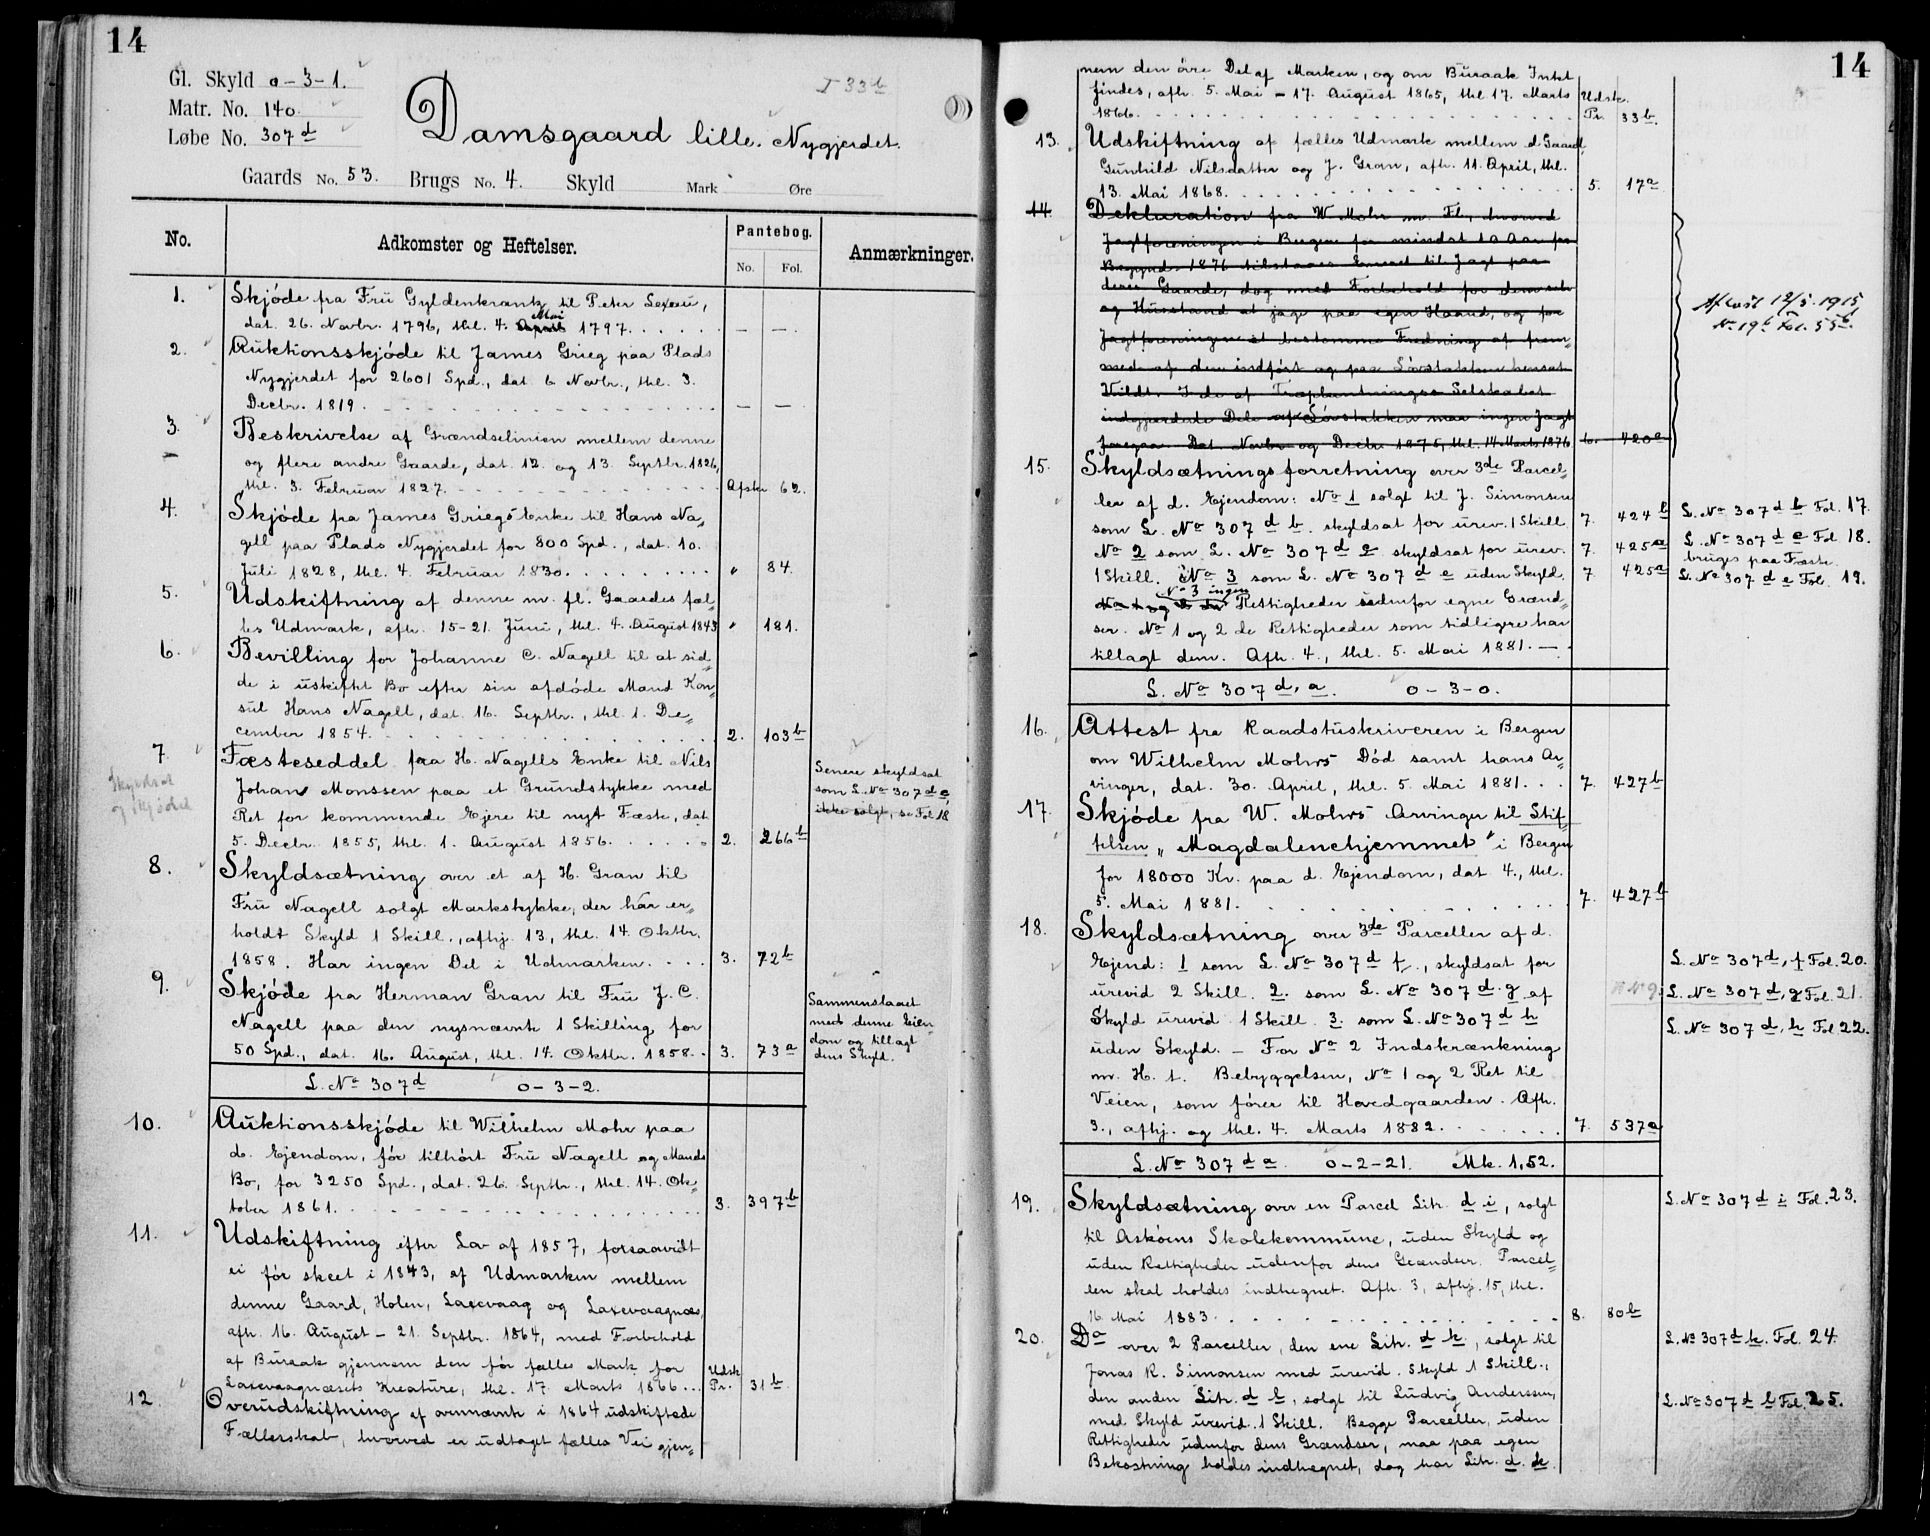 14
Gl. Skyld 0-3-1.
Matr. No. 140.
Løbe No. 307 d
I 33 b
Damsgaard lille. Nygjerdet.
Gaards No. 53. Brugs No. 4. Skyld Mark Øre
No. Adkomster og Heftelser. Pantebog. Anmærkninger.
No. Fol.
1. Skjøde fra Fru Gyldenkrantz til Peter Lexau,
dat. 26. Novbr. 1796, thl. 4. April Mai 1797. — —
2. Auktionsskjøde til James Grieg paa Plads
Nygjerdet for 2601 Spd., dat. 6. Novbr., thl. 3.
Decbr. 1819. — —
3. Beskrivelse af Grændselinien mellem denne
og flere andre Gaarde, dat. 12. og 13. Septbr. 1826,
thl. 3. Februar 1827. Afskr 62.
4. Skjøde fra James Griegs Enke til Hans Na„
gell paa Plads Nygjerdet for 800 Spd., dat. 10.
Juli 1828, thl. 4. Februar 1830. " 84.
5. Udskiftning af denne m. fl. Gaardes fæl„
les Udmark, afh. 15-21. Juni, thl. 4. August 1843 " 181.
6. Bevilling for Johanne C. Nagell til at sid„
de i uskiftet Bo efter sin afdøde Mand Kon„
sul Hans Nagell, dat. 16. Septbr., thl. 1. De„
cember 1854. 2. 103 b
7. Fæsteseddel fra H. Nagells Enke til Nils
Johan Monssen paa et Grundstykke med
Ret for kommende Ejere til nyt Fæste, dat.
5. Decbr. 1855, thl. 1. August 1856. 2. 266 b
Skyldsat
og skjødet
Senere skyldsat
som L. No 307 d c,
ikke solgt, se Fol 18
8. Skyldsætning over et af H. Gran til
Fru Nagell solgt Markstykke, der har er„
holdt Skyld 1 Skill., afhj. 13, thl. 14. Oktbr.
1858. Har ingen Del i Udmarken. 3. 72 b
9. Skjøde fra Herman Gran til Fru J. C.
Nagell paa den nysnævnte 1 Skilling for
50 Spd., dat. 16. August, thl. 14. Oktbr. 1858. 3. 73 a
Sammenslaaet
med denne Eien„
dom og tillagt
dens Skyld.
L. No 307 d 0-3-2.
10. Auktionsskjøde til Wilhelm Mohr paa
d. Ejendom, før tilhørt Fru Nagell og Mands
Bo, for 3250 Spd., dat. 26. Septbr., thl. 14. Ok„
tober 1861. 3. 397 b
11. Udskiftning efter Lov af 1857, forsaavidt
ei før skeet i 1843, af Udmarken mellem
denne Gaard, Holen, Laxevaag og Laxevaagnæs,
afh. 16. August - 21. Septbr. 1864, med Forbehold
af Buraak gjennem den før fælles Mark for
Laxevaagnæsets Kreature, thl. 17. Marts 1866. Udsk. Pr. 31 b
12. Overudskiftning af ovennævnte i 1864 udskiftede
Fællesskab, hvorved er udtaget fælles Vei gjen„
14
nem den øvre Del af Marken, og om Buraak Intet
findes, afh. 5. Mai - 17. August 1865, thl. 17. Marts
1866. Udsk. Pr. 33 b.
13. Udskiftning af fælles Udmark mellem d. Gaard,
Gunhild Nilsdatter og J. Gran, afh. 11. April, thl.
13. Mai 1868. 5. 17 a
14. Deklaration fra W Mohr m. Fl., hvorved
Jagtforeningen i Bergen for mindst 10 Aar fra
Begyndl. 1876 tilstaaes Eneret til Jagt paa
deres Gaarde, dog med Forbehold for dem selv
og Husstand at jage paa egen Haand, og for
Jagtforeningen at bestemme Fredning af frem„
med af dem indført og paa Løvstakken hensat
Vildt. I de af Træplantnings Selskabet
indgjerdede Dele af Løvstakken maa ingen Jagt
foregaa. Dat. Novbr og Decbr 1875, thl. 14 Marts 1876 6. 420 a
Aflæst 12/5. 1915,
No 19 b Fol. 55 b.
15. Skyldsætningsforretning over 3de Parcel„
ler af d. Ejendom: No 1 solgt til J. Simonsen
som L. No 307 d b. skyldsat for urev. 1 Skill. 7. 424 b L. No 307 d b Fol. 17.
No 2 som L. No 307 d c skyldsat for urev. 7. 425 a L. No 307 d c Fol 18.
bruges paa Fæste.
1 Skill. No 3 som L. No 307 d e uden Skyld. 7 425 a L. No 307 d e Fol. 19.
No 3 ingen
Rettigheder udenfor egne Grænd„
ser. No 1 og 2 de Rettigheder som tidligere har
tillagt dem. Afh. 4., thl. 5. Mai 1881.
L. No 307 d, a. 0-3-0.
16. Attest fra Raadstuskriveren i Bergen
om Wilhelm Mohrs Død samt hans Ar„
vinger, dat. 30. April, thl. 5. Mai 1881. 7. 427 b
17. Skjøde fra W. Mohrs Arvinger til Stif„
telsen „Magdalenehjemmet" i Bergen
for 18000 Kr. paa d. Ejendom, dat 4., thl.
5. Mai 1881. 7. 427 b
18. Skyldsætning over 3de Parceller af d.
Ejend: 1 som L. No 307 d f., skyldsat for L. No 307 d, f Fol. 20.
urevid 2 Skill. 2. som L. No 307 d g af L. No 307 d, g Fol. 21.
Skyld urevid. 1 Skill. 3. som L. No 307 d h L. No 307 d, h Fol 22.
uden Skyld. — For No 2 Indskrænkning
m. H. t. Bebyggelsen, No 1 og 2 Ret til
Veien, som fører til Hovedgaarden. Afh.
3., afhj. og thl. 4. Marts 1882. 7. 537 a
L. No 307 d a 0-2-21. Mk. 1,52.
19. Skyldsætning over en Parcel Litr. d i, solgt L. No 307 d i Fol. 23.
til Askøens Skolekommune, uden Skyld og
uden Rettigheder udenfor dens Grændser. Parcel„
len skal holdes indhegnet. Afh. 3, afhj. 15, thl.
16 Mai 1883. 8. 80 b
20. Do over 2 Parceller, den ene Litr. d k, solgt til L. No 307 d k. Fol. 24
Jonas R. Simonsen med urevid. Skyld 1 Skill.,
den anden Litr. d l, solgt til Ludvig Anderssen, L. No 307 d l Fol. 25.
med Skyld urevid. 1 Skill. Begge Parceller, uden
Rettigheder udenfor dens Grændser, maa paa egen
Bekostning holdes indhegnet, dog har Litr. d. k